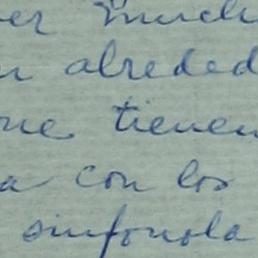 er much
n alreded
ue tienen
a con los
sinfonola